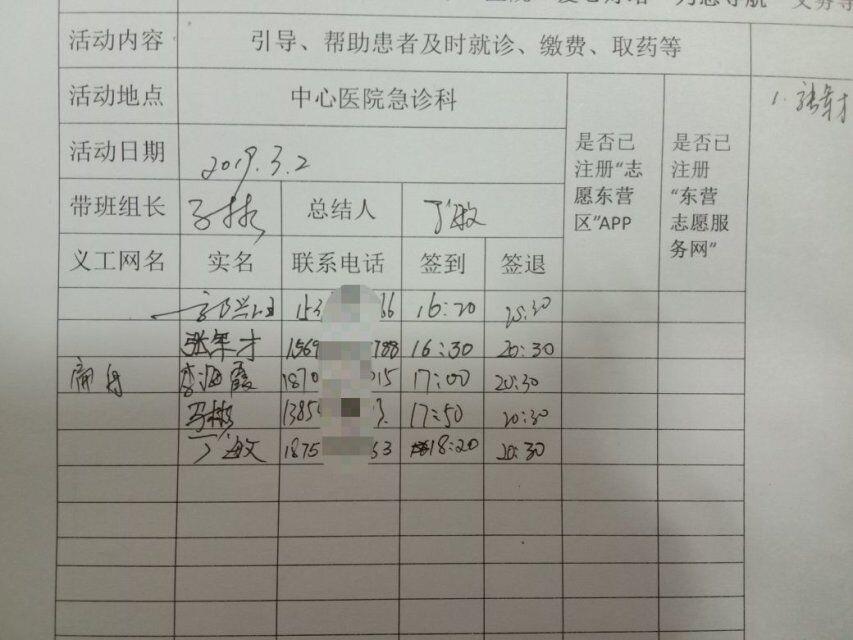 活动内容 引导、帮助患者及时就诊、缴费、取药等
活动地点 中心医院急诊科
1. 张军才
活动日期 2019.3.2
是否已注册“志愿东营区”APP
是否已注册“东营志愿服务网”
带班组长 马彬 总结人 丁敏
义工网名 实名 联系电话 签到 签退
153 66 16:20 20:30
张军才 1569 788 16:30 20:30
李海霞 1870 15 17:00 20:30
马彬 1385 17:50 20:30
丁敏 1875 53 18:20 20:30